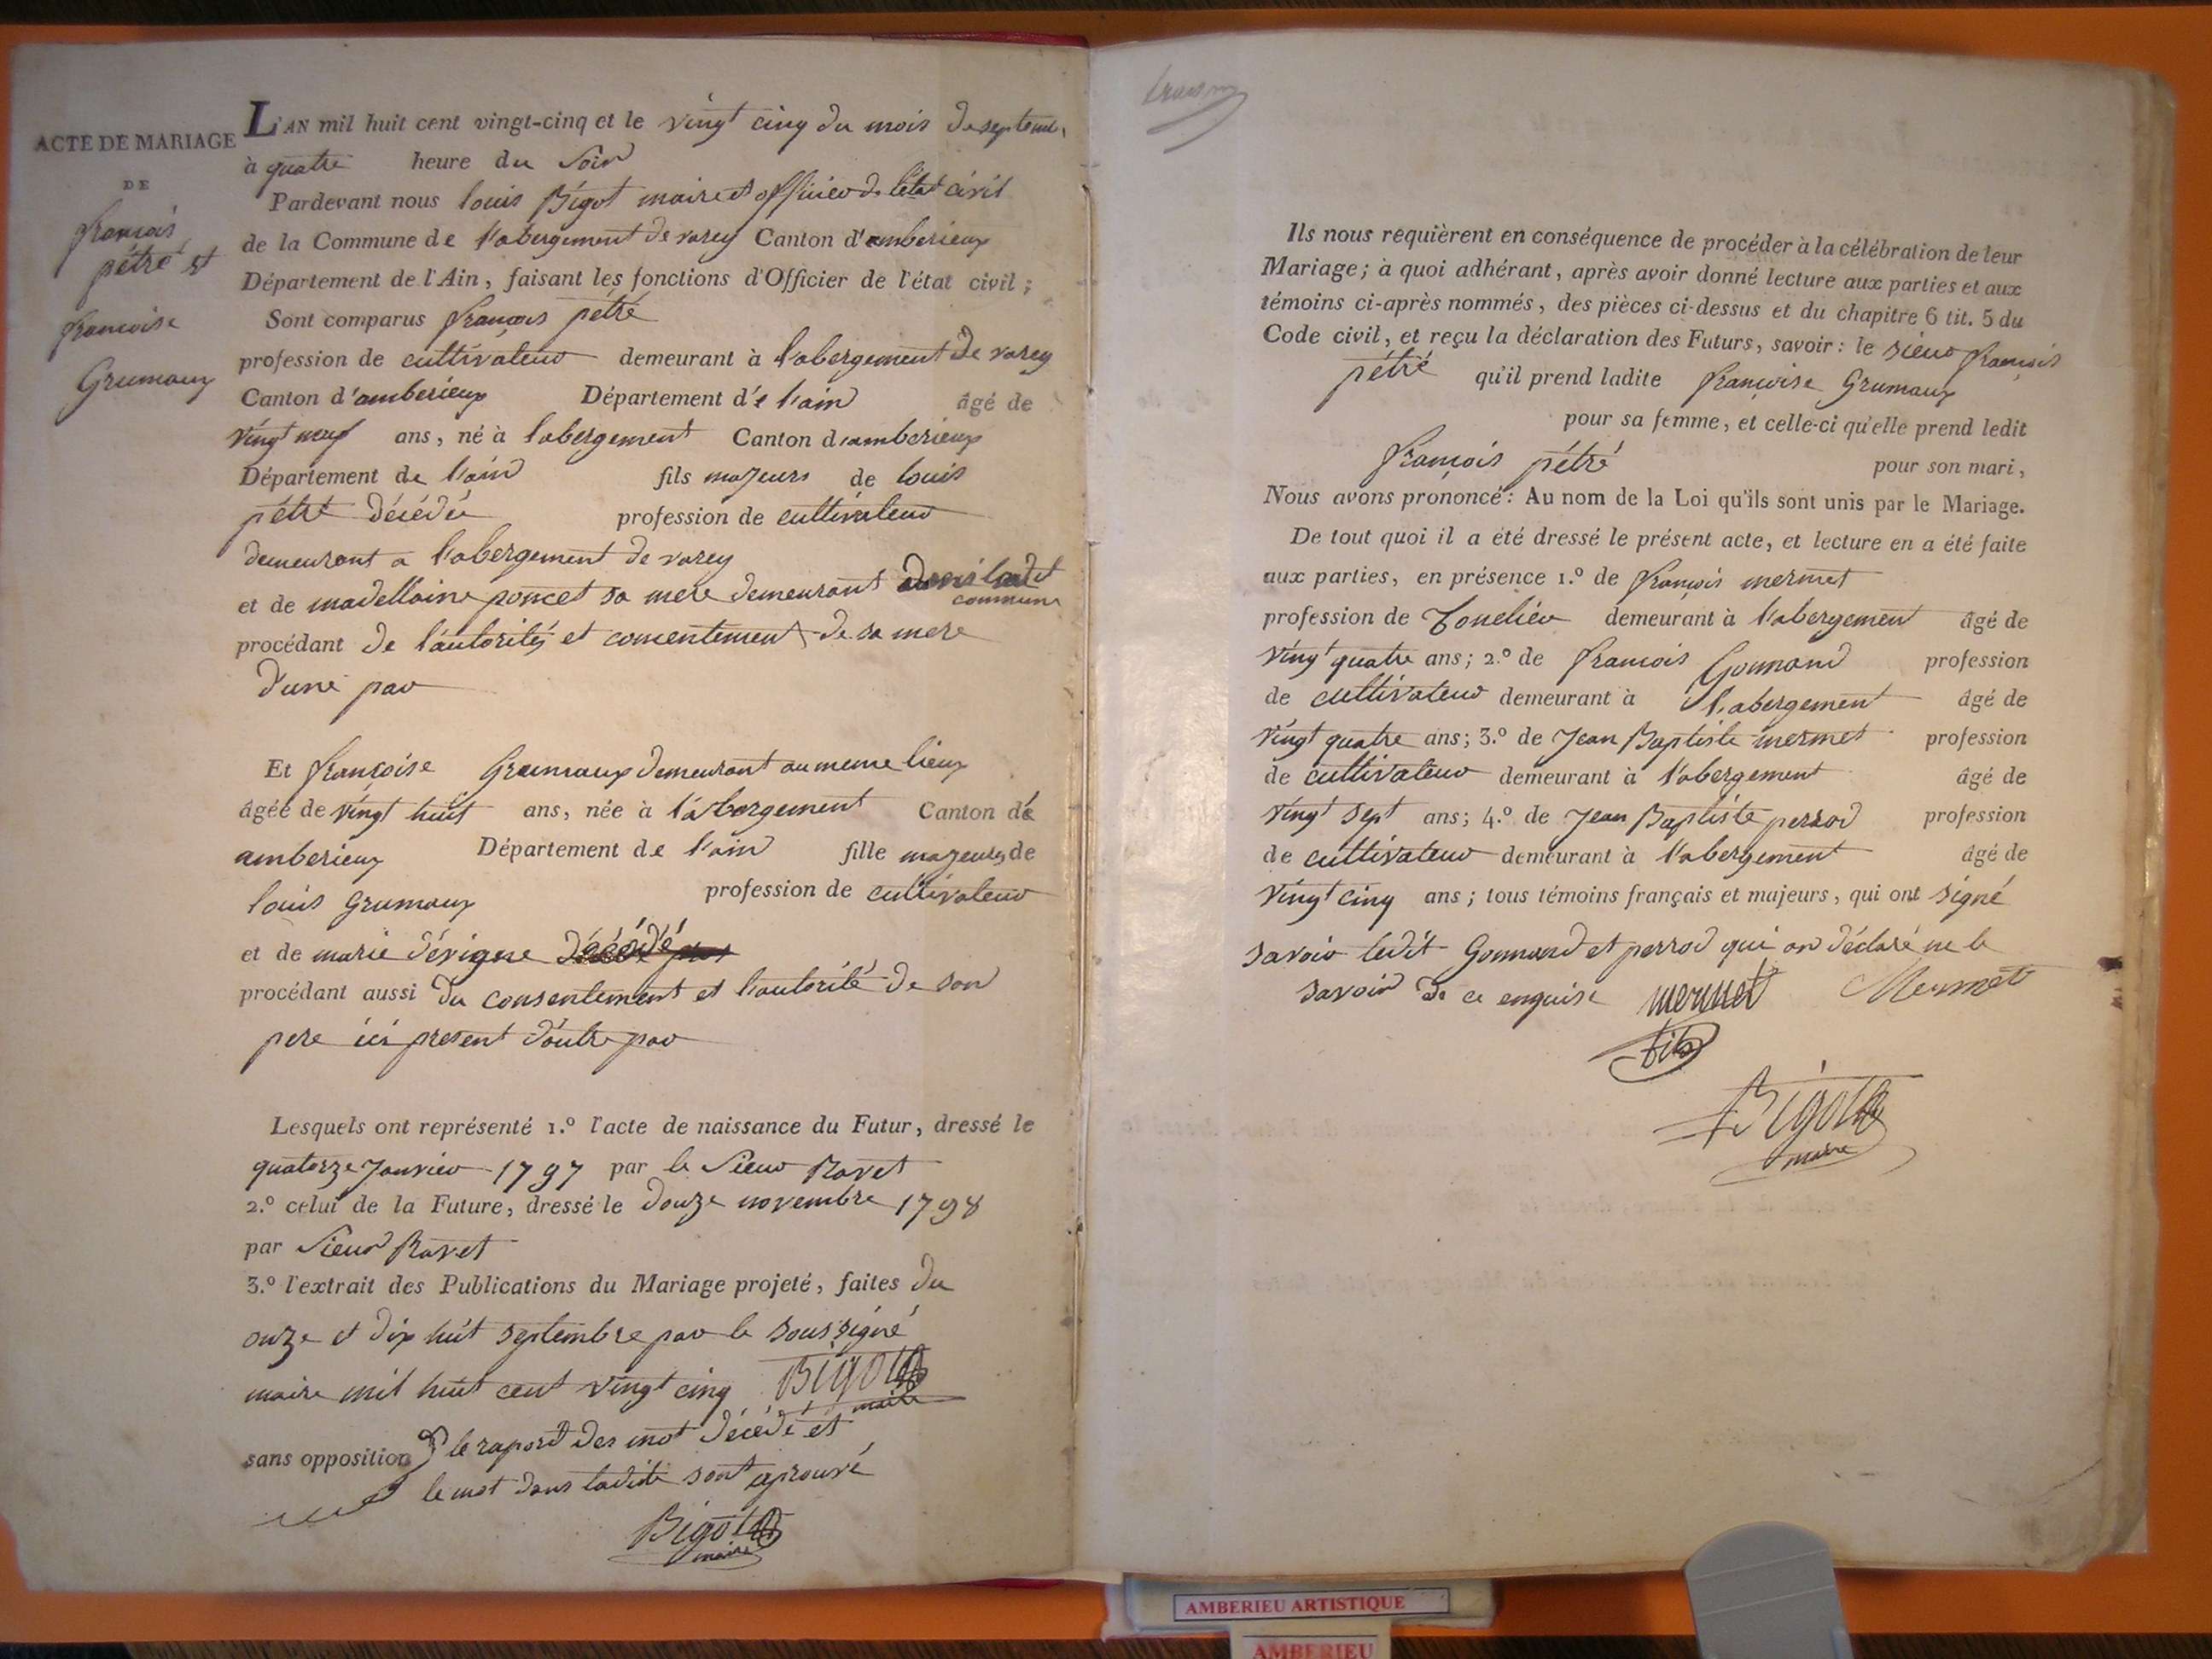 ACTE DE MARIAGE
DE
françois
pétré et
françoise
Grumaux
L'AN mil huit cent vingt-cinq et le vingt cinq du mois de septemb.
à quatre heure du soir
Pardevant nous louis Bigot maire et officier de l'état civil
de la Commune de l'abergement de varey Canton d'amberieux
Département de l'Ain, faisant les fonctions d'Officier de l'état civil ;
Sont comparus françois pétré
profession de cultivateur demeurant à l'abergement de varey
Canton d'amberieux Département de l'ain âgé de
vingt neuf ans, né à l'abergement Canton d'amberieux
Département de l'ain fils majeurs de louis
pétré décédé profession de cultivateur
demeurant a l'abergement de varey
et de madellaine poncet sa mere demeurant dans ladit
commune
procédant de l'autorités et consentement de sa mere
d'une par
Et françoise Grumaux demeurant au meme lieux
âgée de vingt huit ans, née à l'abergement Canton dé
amberieux Département de l'ain fille majeurs de
louis Grumaux profession de cultivateur
et de marie dévigne décédé
procédant aussi du consentement et l'autorité de son
pere ici present d'autre par
Lesquels ont représenté 1.º l'acte de naissance du Futur, dressé le
quatorze Janvier 1797 par le Sieur Ravet
2.º celui de la Future, dressé le douze novembre 1798
par Sieur Ravet
3.º l'extrait des Publications du Mariage projeté, faites du
onze et dix huit septembre par le soussigné
maire mil huit cent vingt cinq Bigot
maire
sans opposition le raport des mot décédé et
le mot dans ladite sont aprouvé
Bigot
maire
Ils nous requièrent en conséquence de procéder à la célébration de leur
Mariage; à quoi adhérant, après avoir donné lecture aux parties et aux
témoins ci-après nommés, des pièces ci-dessus et du chapitre 6 tit. 5 du
Code civil, et reçu la déclaration des Futurs, savoir: le sieur françois
pétré qu'il prend ladite françoise Grumaux
pour sa femme, et celle-ci qu'elle prend ledit
françois pétré pour son mari,
Nous avons prononcé : Au nom de la Loi qu'ils sont unis par le Mariage.
De tout quoi il a été dressé le présent acte, et lecture en a été faite
aux parties, en présence 1.º de françois mermet
profession de Tonelier demeurant à l'abergement âgé de
vingt quatre ans; 2.º de françois Gonnand profession
de cultivateur demeurant à l'abergement âgé de
vingt quatre ans; 3.º de Jean Baptiste mermet profession
de cultivateur demeurant à l'abergement âgé de
vingt sept ans; 4.º de Jean Baptiste perrod profession
de cultivateur demeurant à l'abergement âgé de
vingt cinq ans ; tous témoins français et majeurs, qui ont signé
savoir ledit Gonnand et perrod qui on déclaré ne le
savoir de ce enquise mermet Mermet
fils
Bigot
maire
AMBERIEU ARTISTIQUE
AMBERIEU